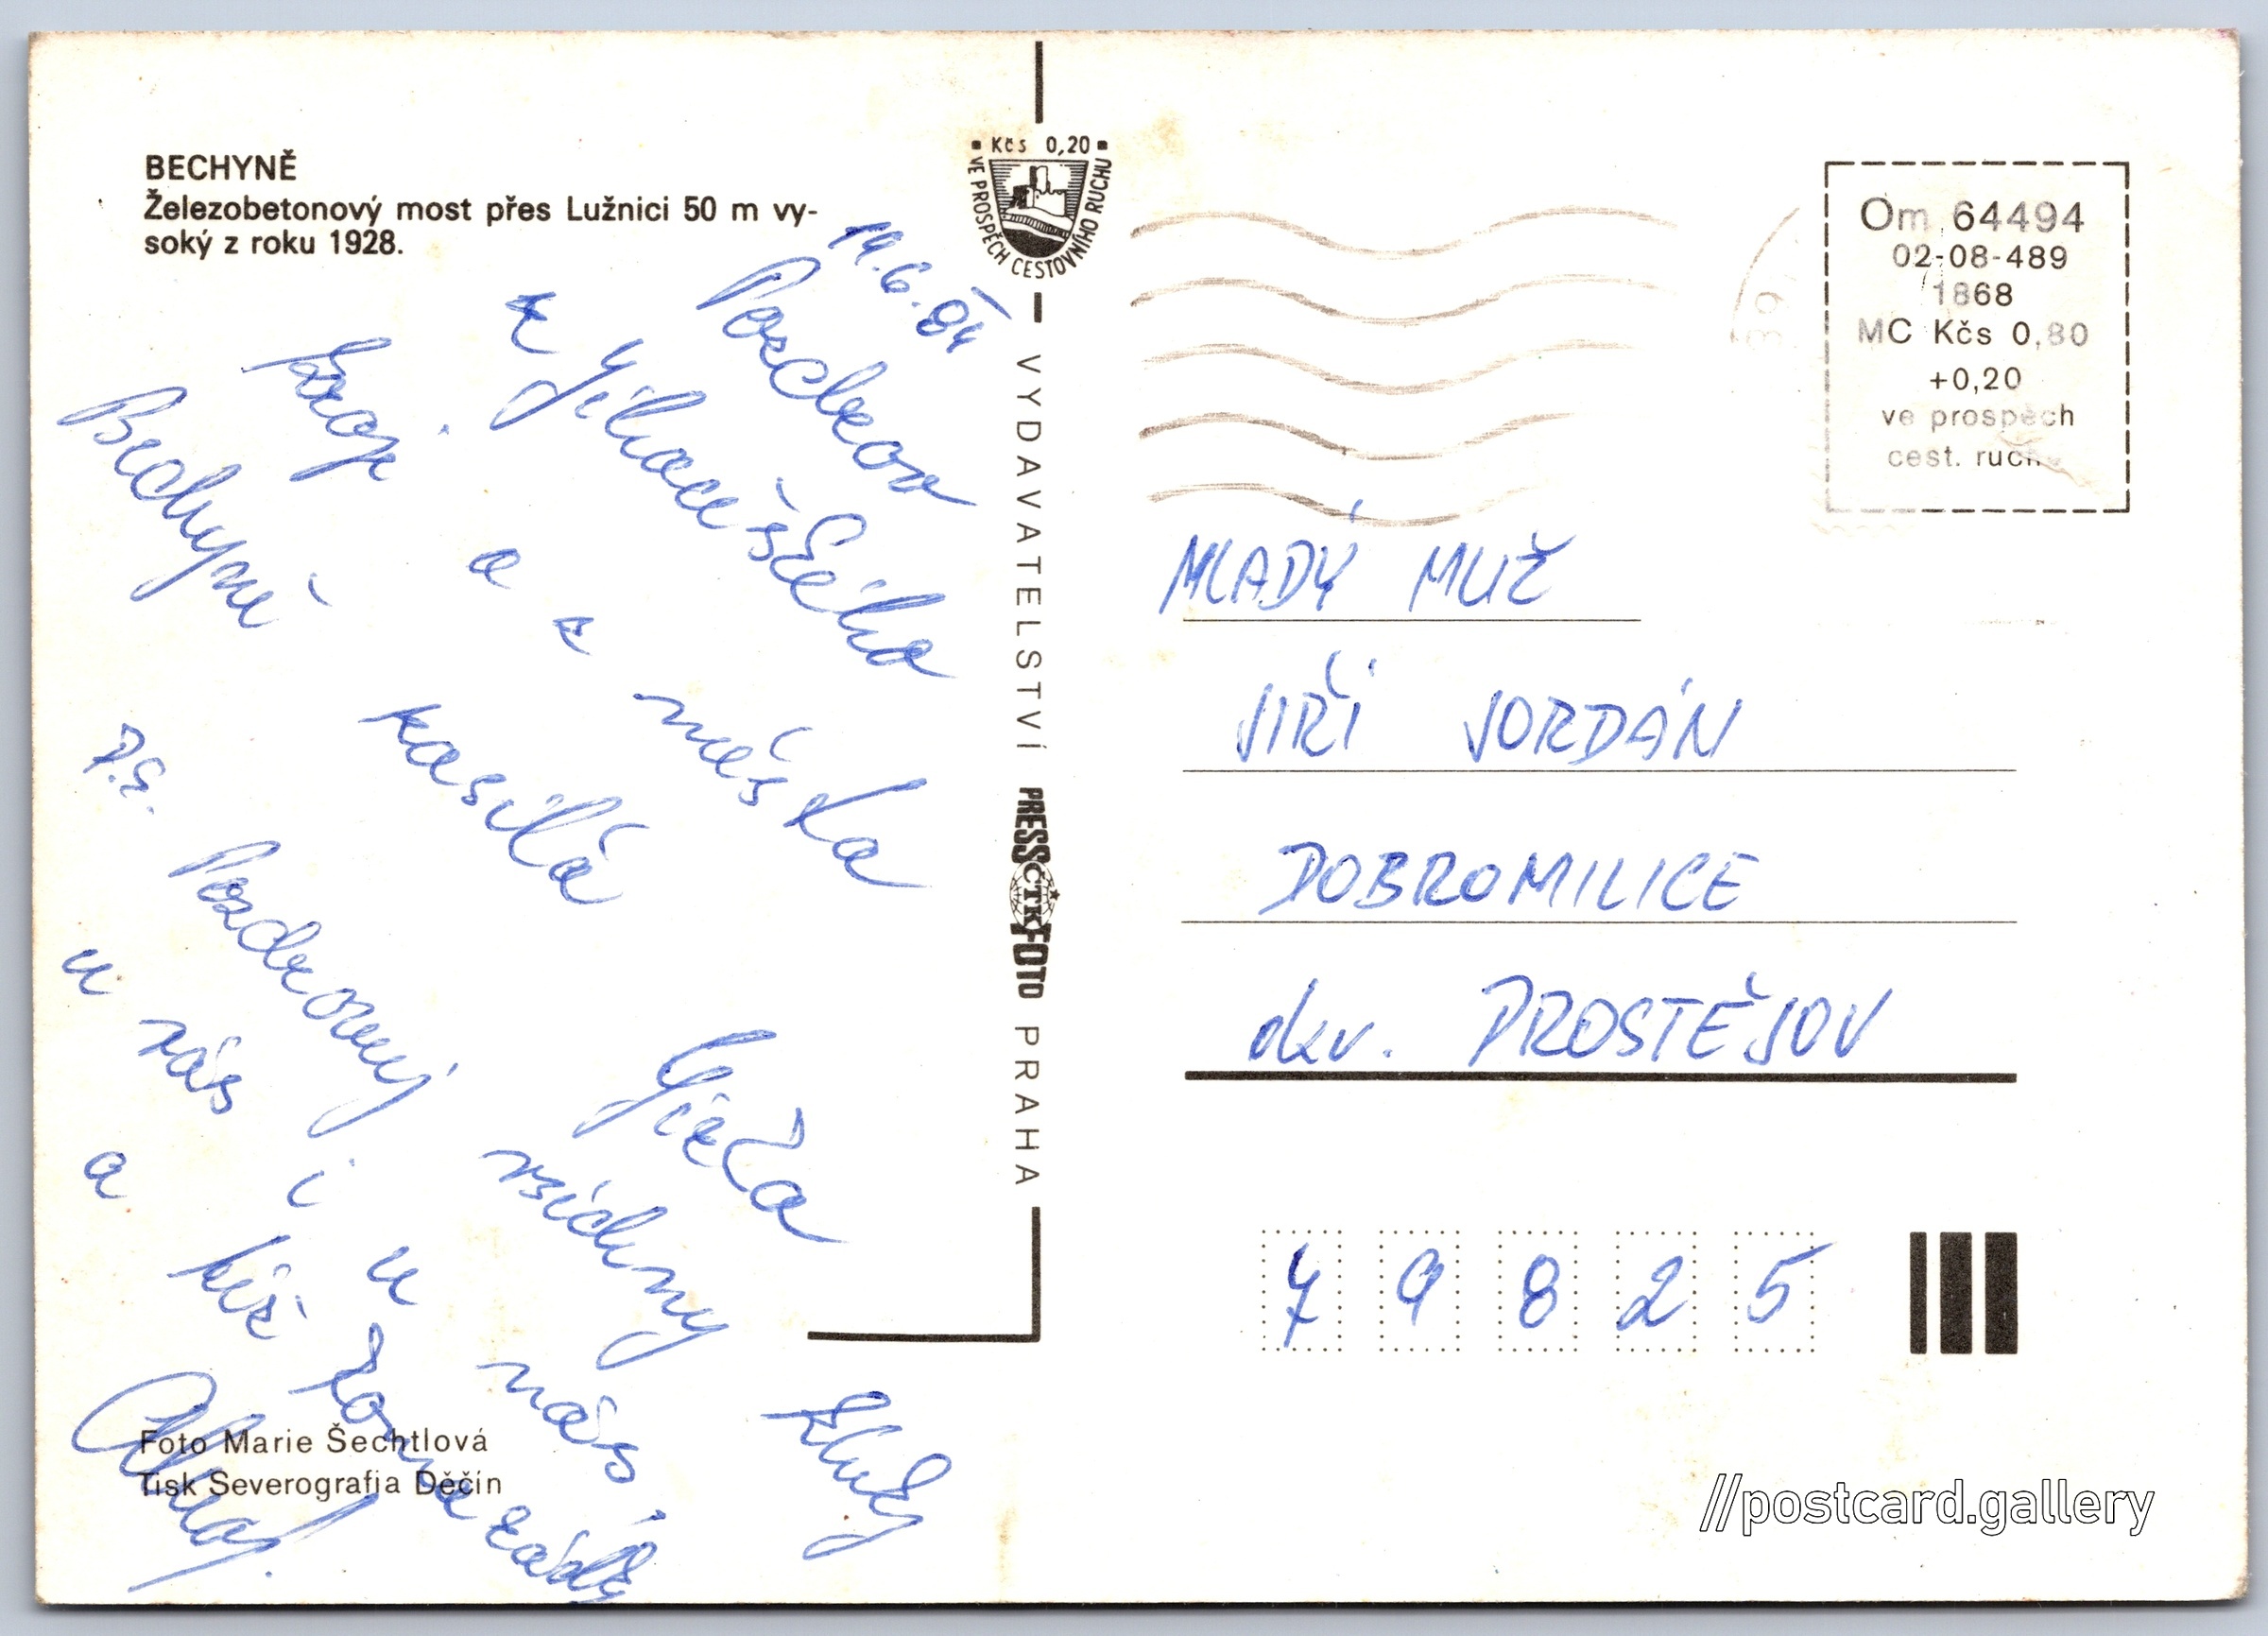 BECHYNĚ
Železobetonový most přes Lužnici 50 m vy-
soký z roku 1928.
14.6.84
Pozdrav
z Jihočeského
kraje a z města
Bechyně
P.S. Pozdravuj
u vás i
a
u nás.
Foto Marie Šechtlová
Tisk Severografia Děčín
Kčs 0,20
VE PROSPĚCH CESTOVNÍHO RUCHU
VYDAVATELSTVÍ PRESSFOTO PRAHA
ČTK
Om 64494
02-08-489
1868
MC Kčs 0,80
+0,20
ve prospěch
cest. ruchu
MLADÝ MUŽ
JIŘÍ JORDÁN
DOBROMILICE
okr. PROSTĚJOV
79825
//postcard.gallery